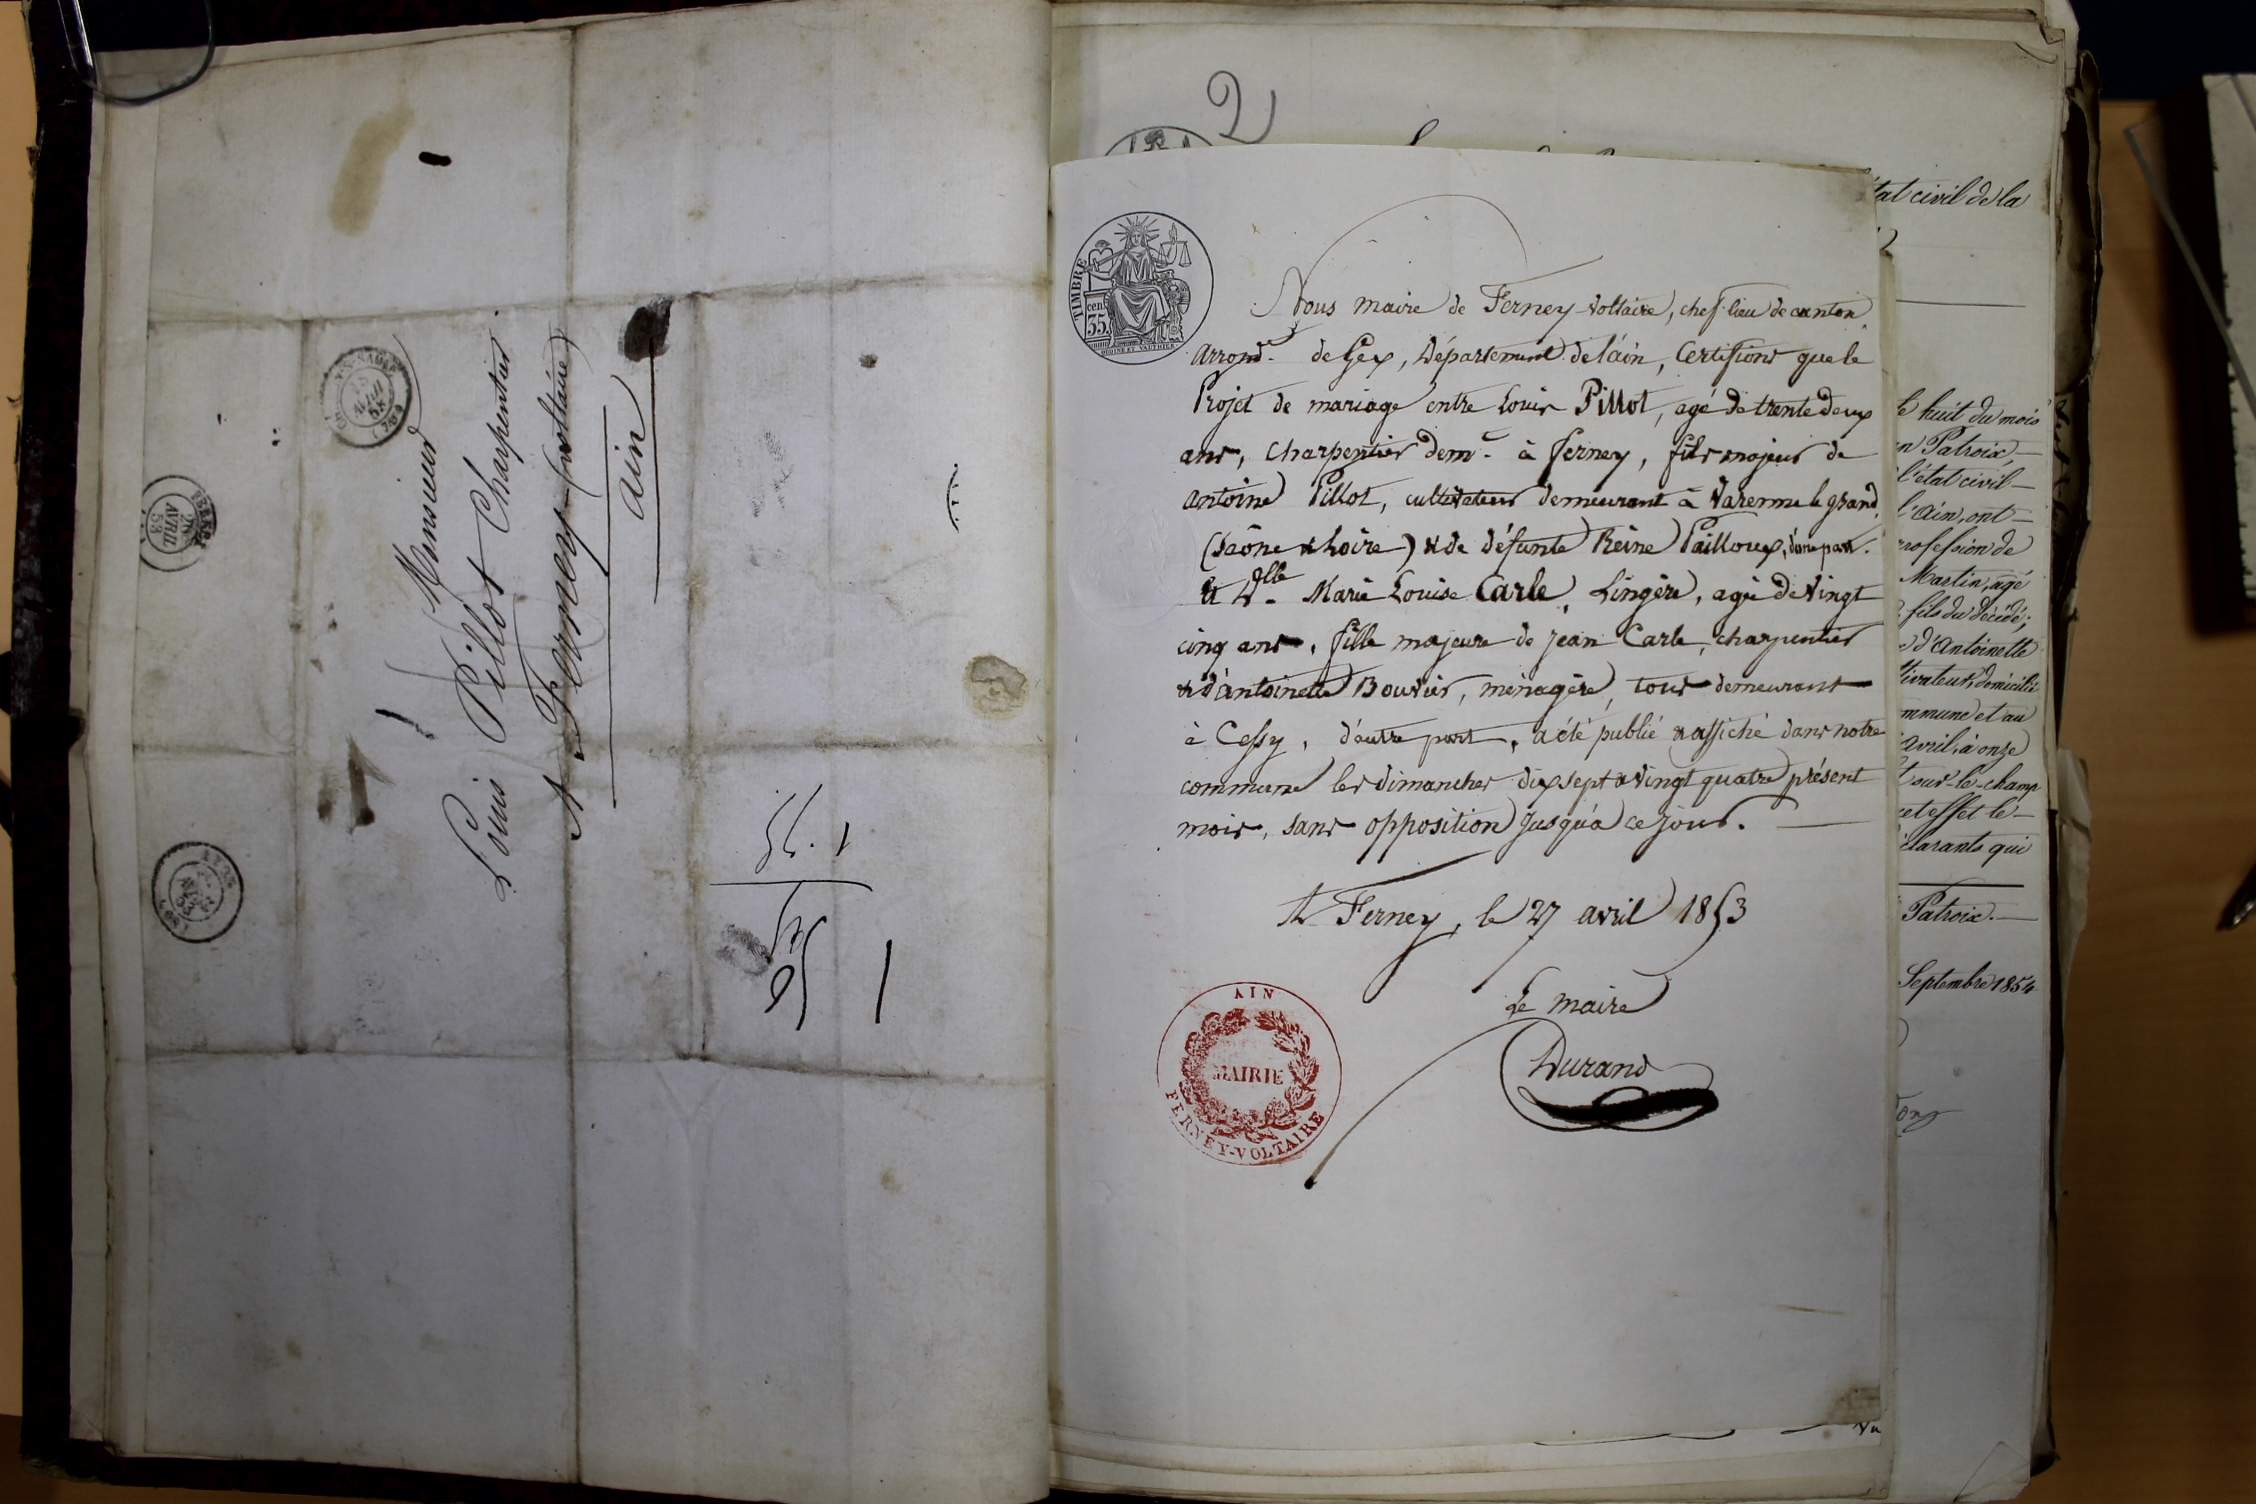 Monsieur
Louis Pillot Charpentier
A Fernex (voltaire)
ain
AVRIL
53
2
TIMBRE
cent
35
Nous maire de Ferney-Voltaire, chef-lieu de canton,
arrond.t de Gex, Département de l'ain, Certifions que le
Projet de mariage entre Louis Pillot, agé de trente deux
ans, Charpentier dem.t à ferney, fils majeur de
antoine Pillot, cultivateur demeurant à Varenne le grand
(Saône & Loire) & de défunte Reine Pailloux, d'une part.
Et D.lle Marie Louise Carle, Lingère, agée de Vingt
cinq ans, fille majeure de jean Carle, charpentier
& d'antoinette Bouvier, ménagère, tous demeurant
à Cessy, d'autre part, a été publié & affiché dans notre
commune les dimanches dix sept & Vingt quatre présent
mois, sans opposition jusqu'à ce jour.
A Ferney, le 27 avril 1853
Le maire
Durand
AIN
MAIRIE
FERNEY-VOLTAIRE
état civil de la
le huit du mois
Patroix,
l'état civil
l'ain, ont
profession de
Martin, agé
fils du décédé;
d'antoinette
domicilié
commune et au
avril, à onze
sur-le-champ
cet effet le
déclarants qui
Patroix.
Septembre 1854